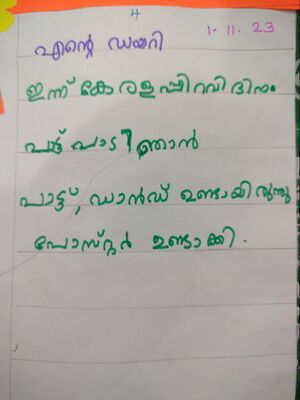 4
1-11-23
എന്റെ ഡയറി
ഇന്ന് കേരളപ്പിറവിദിനം
പാട്ട് പാടി ഞാൻ
പാട്ട്, ഡാൻഡ് ഉണ്ടായിരുന്നു
പോസ്റ്റർ ഉണ്ടാക്കി.